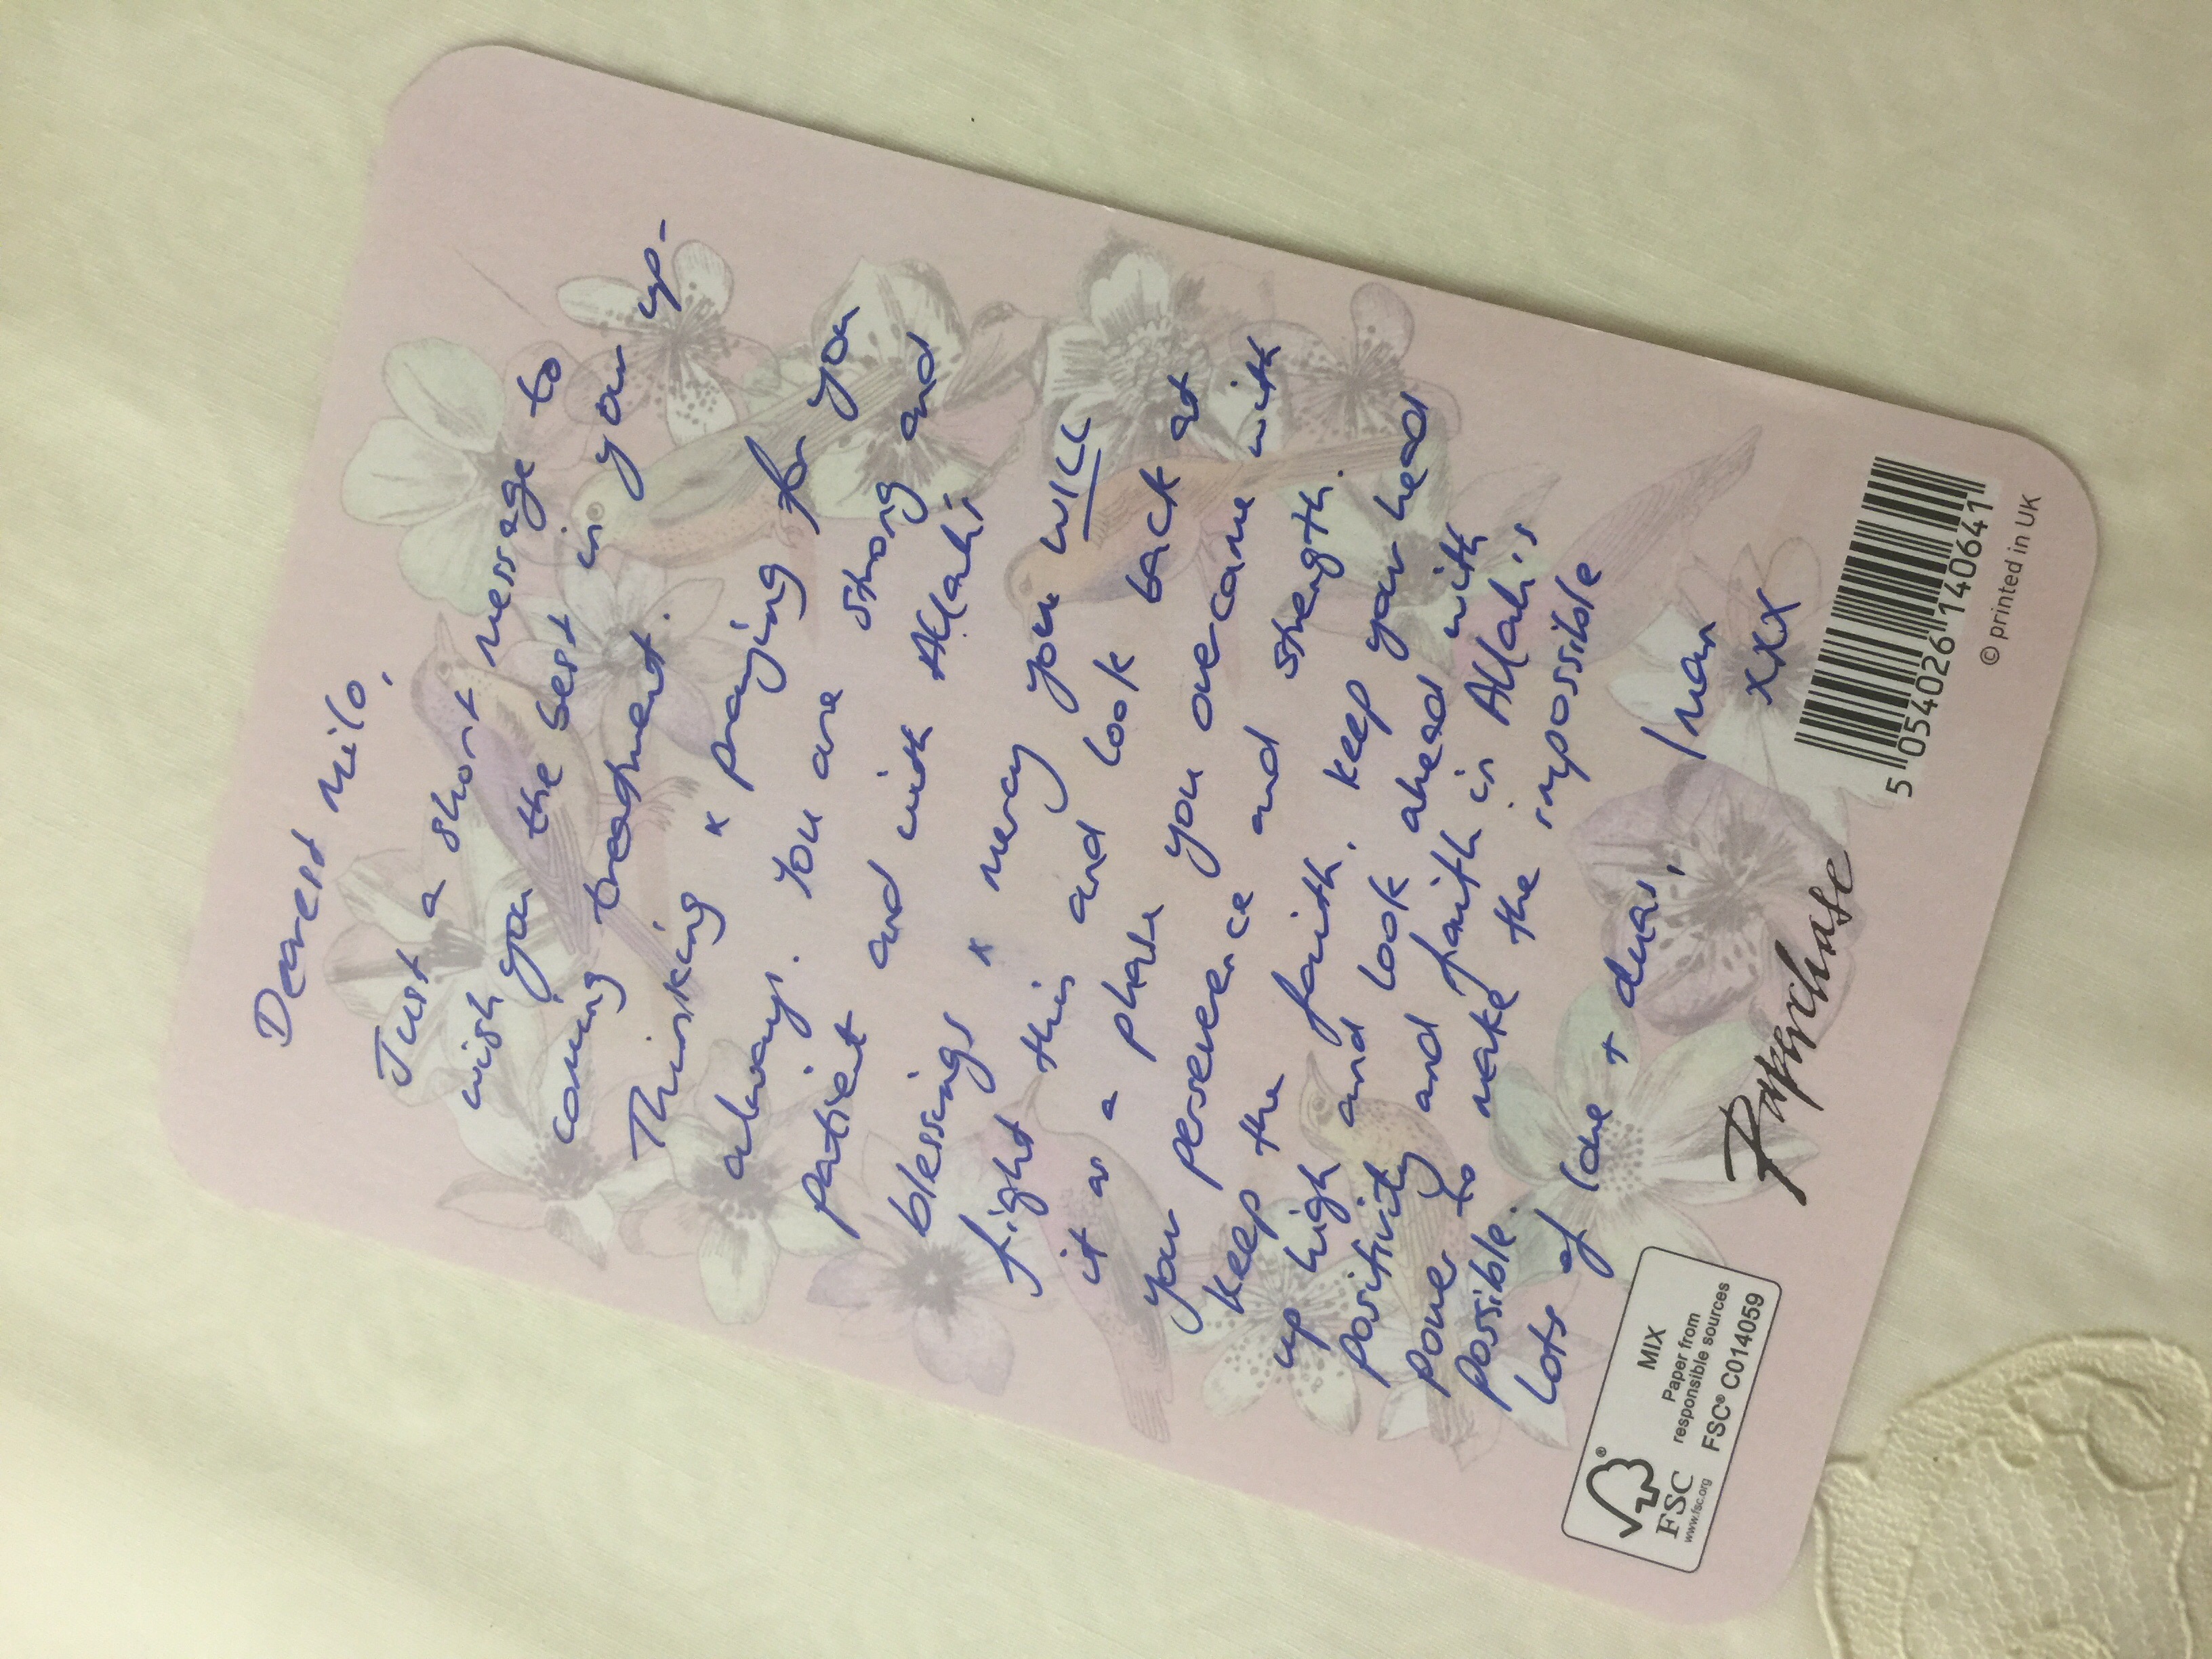 Dearest Milo,
Just a short message to
wish you the best in your up-
coming treatment.
Thinking + praying for you
always. You are strong and
patient and with Allah's
blessings + mercy you WILL
fight this and look back at
it as a phase you overcame with
your perseverence and strength.
Keep the faith. Keep your head
up high and look ahead with
positivity and faith in Allah's
power to make the impossible
possible.
Lots of love + duas,
Iman
xxx
Paperchase
FSC®
www.fsc.org
MIX
Paper from
responsible sources
FSC® C014059
5 054026 140641
© printed in UK